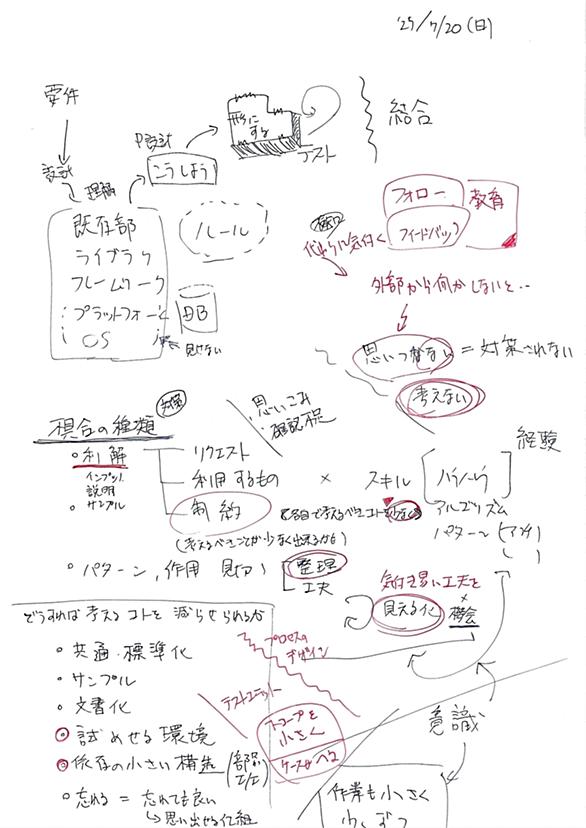 '25/7/20(日)
要件
設計
理解
既存部
ライブラリ
フレームワーク
プラットフォーム
OS
DB
見せない
ルール
こうしよう
形に
する
テスト
結合
フォロー
フィードバック
教育
外部から何かしないと・・
思いつかない = 対策されない
考えない
・思いこみ
・確認不足
の種類
・利解
インプット
説明
サンプル
リクエスト
利用するもの
制約
(考えるべきことが少なく出来るかも)
× スキル
経験
ノウハウ
アルゴリズム
パターン(アンチ)
・パターン、作用
整理
工夫
気付き易い工夫を
見える化
×
機会
どうすれば考えるコトを減らせられるか
・共通・標準化
・サンプル
・文書化
◎試めせる環境
◎依存の小さい構造(部品 I/F)
・忘れる = 忘れても良い
↳思い出せる仕組
プロセスの
デザイン
テストユニット
スコープを
小さく
ケースがへる
意識
作業も小さく
少しずつ